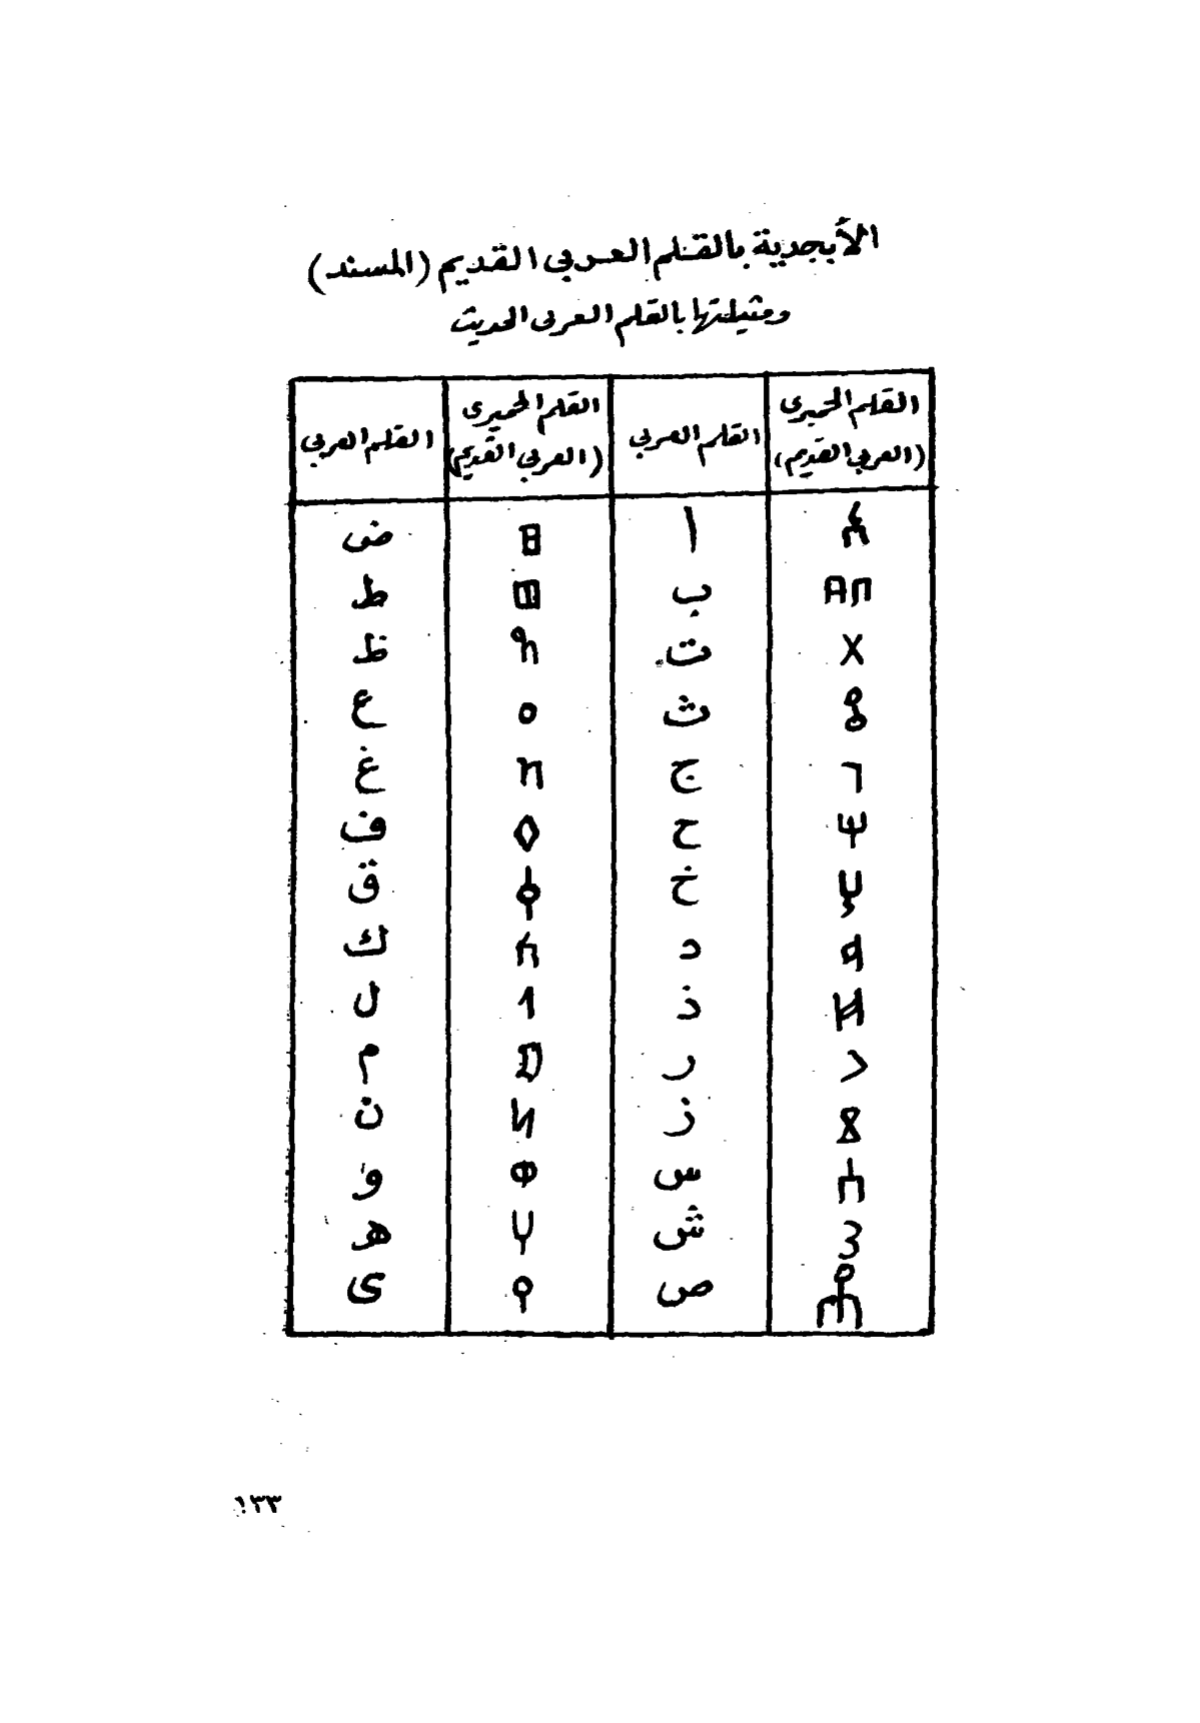 الأبجدية بالقلم العربى القديم (المسند)
ومثيلتها بالقلم العربى الحديث
القلم الحميرى (العربى القديم) القلم العربى القلم الحميرى (العربى القديم) القلم العربى
𐩱 ا 𐩳 ض
𐩨 ب 𐩷 ط
𐩩 ت 𐩼 ظ
𐩻 ث 𐩲 ع
𐩴 ج 𐩶 غ
𐩢 ح 𐩰 ف
𐩭 خ 𐩤 ق
𐩵 د 𐩫 ك
𐩹 ذ 𐩡 ل
𐩧 ر 𐩣 م
𐩸 ز 𐩬 ن
𐩪 س 𐩥 و
𐩦 ش 𐩠 هـ
𐩮 ص 𐩺 ى
١٣٣